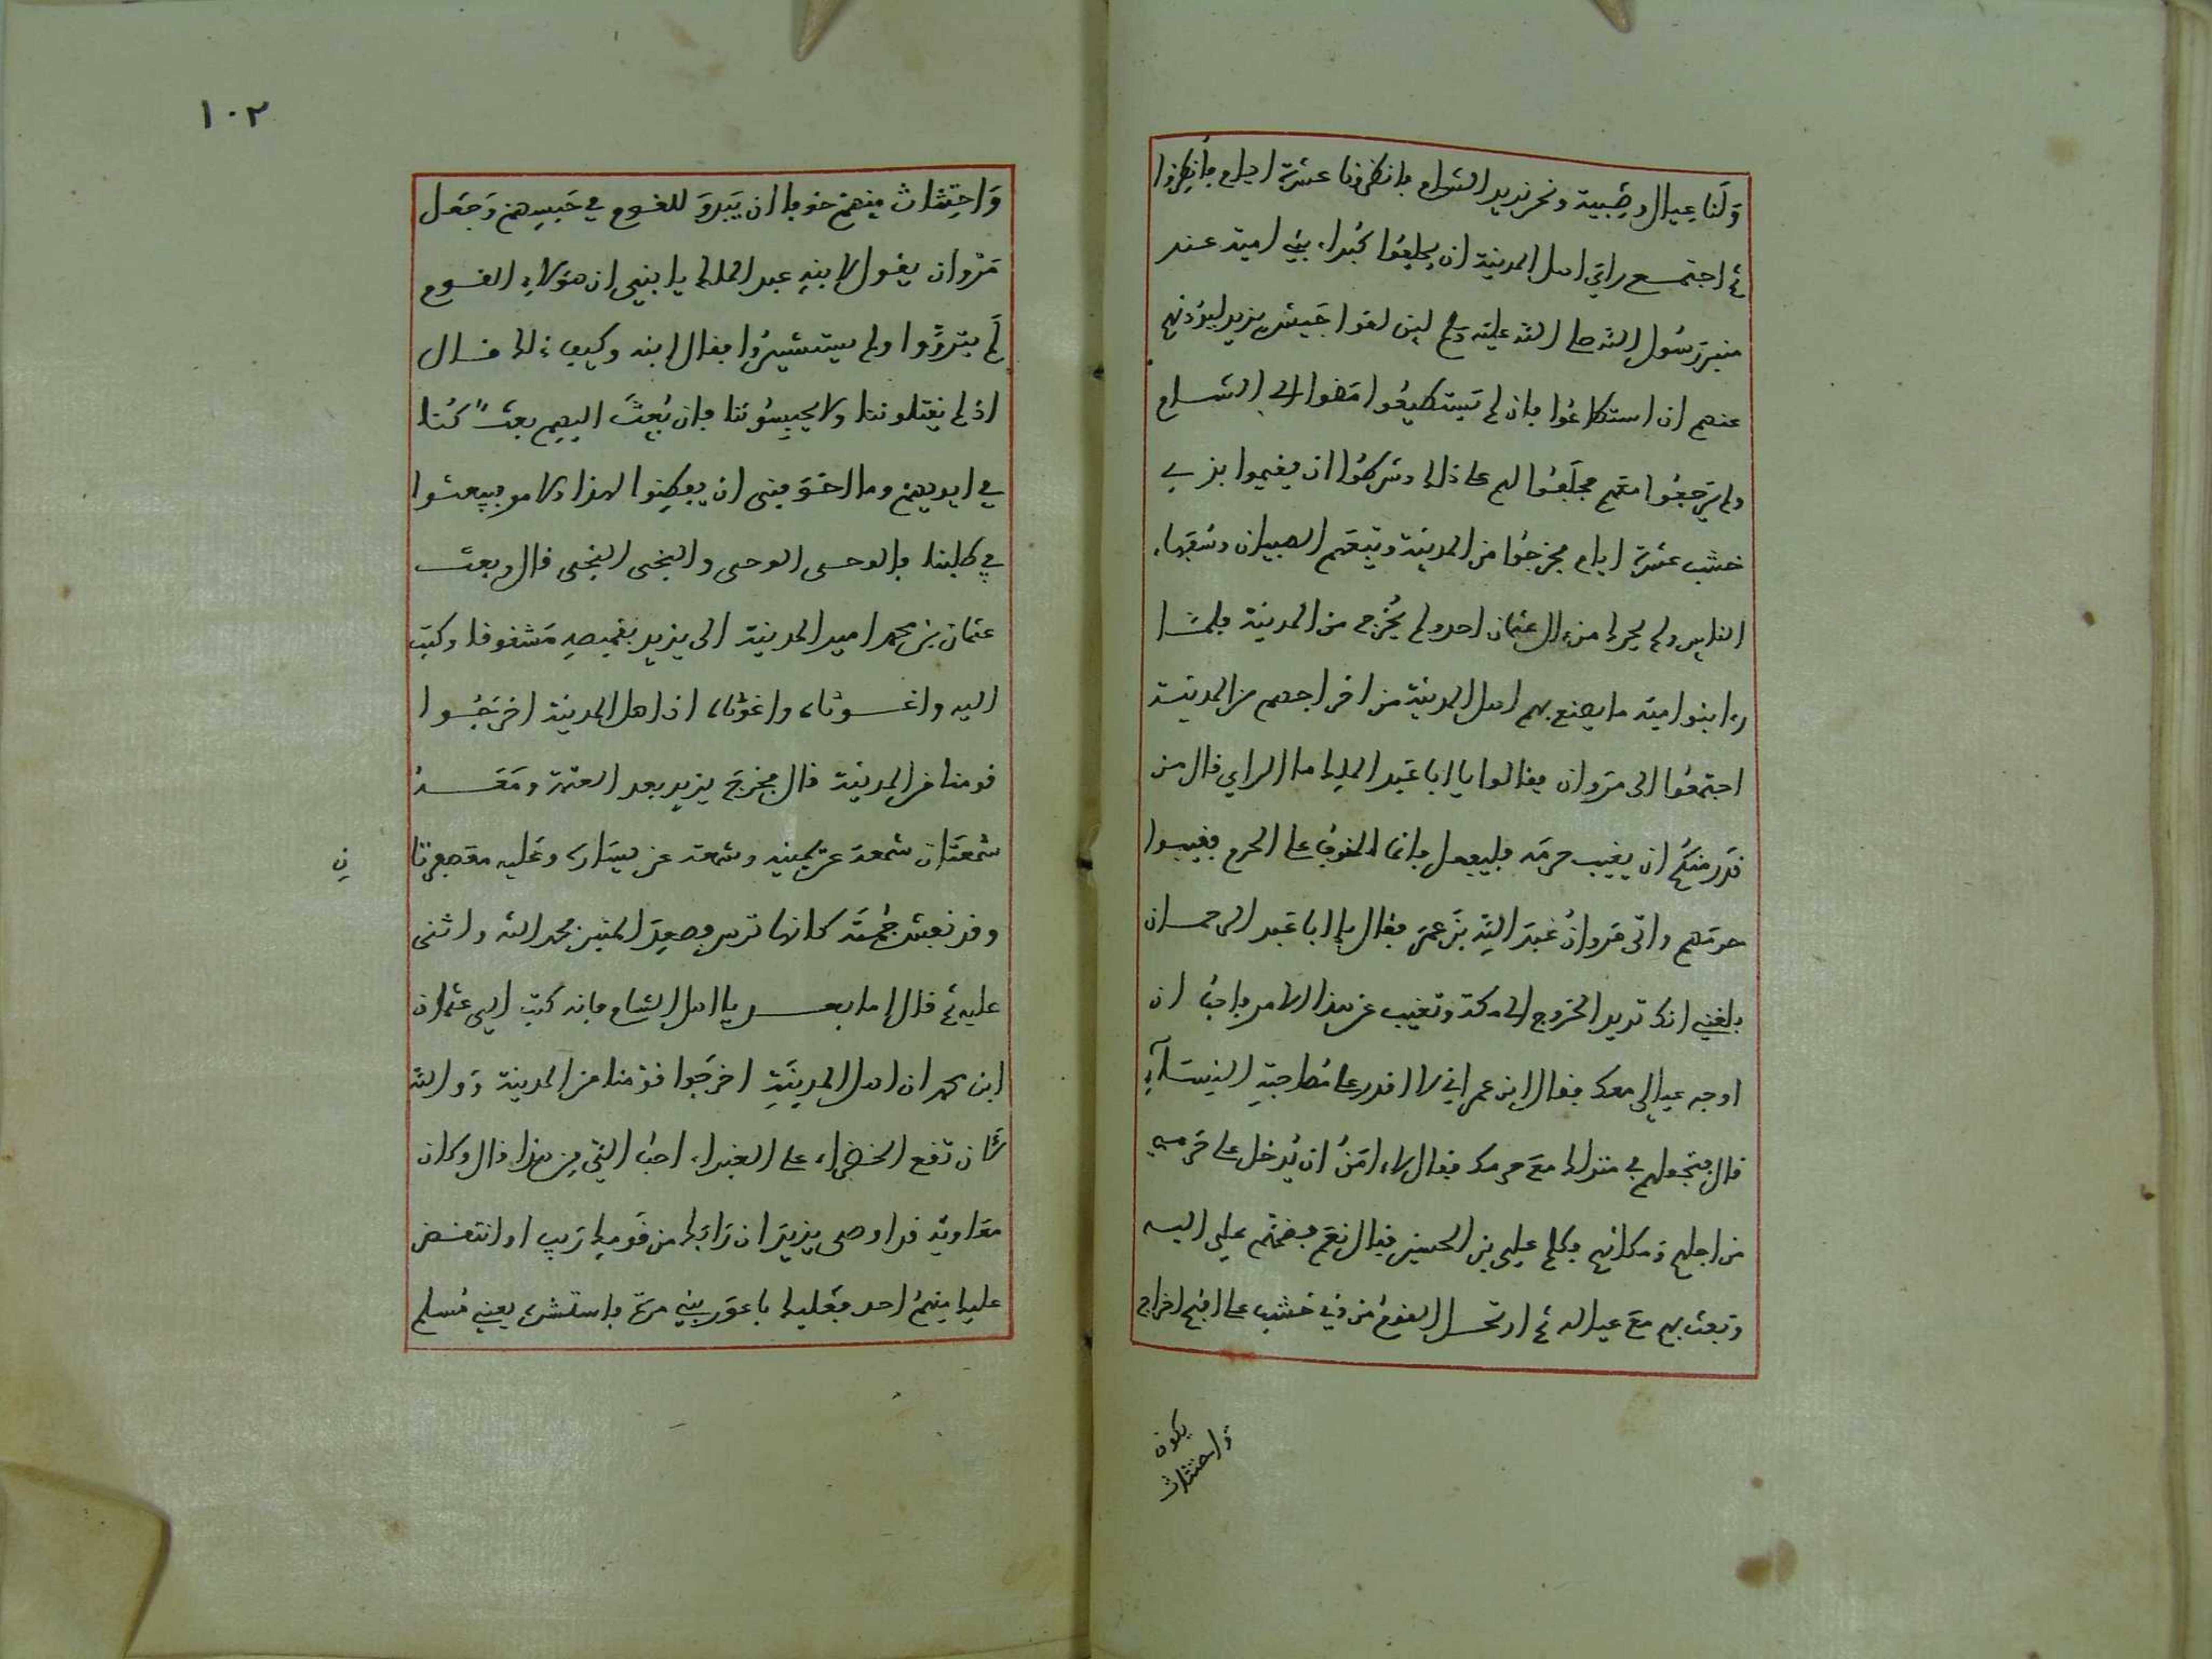 وَلَنا عِيال وصِبية ونحن نريد الشام فانظرونا عشرة ايام فأنظِروا
ثم اجتمع راي اهل المدينة ان يحلِفُوا كُبراء بني امية عند
منبر رسُول الله صلى الله عليه وسلم لين لقوا جَيش يزيد ليرُدّنهم
عنهم ان استطاعُوا فان لم تَستطيعُوا مَضوا الى الشام
ولم يَرجعُوا معَهم فحلَفُوا لهم على ذلك وشرطُوا ان يقيموا بذي
خشب عشرة ايام فخرجُوا من المدينة وتبعَهم الصبيان وسُفهاء
الناس ولم يحرك من ءال عثمان احد ولم يُخرج من المدينة فلما
را بنوا امية ما يصنع بهم اهل المدينة من اخراجهم من المدينة
اجتمعُوا الى مَروان فقالوا يا ابا عَبد الملك ما الراي قال من
قدَر منكُم ان يغيب حرمَه فليفعل فانما الخوف على الحرم فغيبوا
حرمَهم واتى مَروانُ عَبدَ الله بنَ عمَر فقال يا ابا عَبد الرحمان
بلغني انك تريد الخروج الى مكة وتغيب عن هذا الامر فاحبُ ان
اوجه عيالي معك فقال ابن عمر اني لا اقدر على مُصاحبَةِ النِسَآءِ
قال فتجعلهم في منزلك معَ حرمك فقال لا ءامَنُ ان يُدخل على حَرمي
من اجلهم ومكانهم فكلم علي بن الحسين فقال نعَم فضَمَّهم علي اليه
وبَعث بهم معَ عياله ثم ارتحل القومُ من ذي خَشب على اقبَح اخراج
يكون
وَاحتثاث
١٠٢
وَاحتِثاث مِنهمْ خوفا ان يَبدوَ للقوم في حَبسِهمْ وَجَعل
مَرْوان يقول لابنهِ عبد الملك يا بُنيي ان هؤلاءِ القوم
لَم يتروَّوا ولم يستشيرُوا فقال ابنه وكيف ذلك قال
اذ لم يَقتلوننا ولا يحبسُوننا فان بُعِثَ اليهم بعثٌ كُنا
في ايديهمْ وما اخوَفني ان يفطِنوا لهذا الامر فيبعثوا
في طلبنا فالوحى الوحى والنجى النجى قال وبعث
عثمان بن محمد امير المدينة الى يزيد بقميصهِ مَشقوقا وكتب
اليه واغوثاه واغوثاه اذ اهل المدينة اخرَجُوا
قومنا من المدينة قال فخرجَ يزيد بعد العتمة ومَعَهُ
شمعَتان شمعَة عن يمينه وشمعة عن يسَاره وعَليه معصفرتا
ن
وقد نقش جُمَّتَه كانها ترس فصعِدَ المنبر فحمد الله واثنى
عليه ثم قال اما بعد يا اهل الشام فانه كتب الي عثمان
ابن محمد ان اهل المدينَةِ اخرَجُوا قوْمنا من المدينة وَوالله
لأن تقع الخضراء على الغبراء احبُ الي من هذا قال وكان
معَاوية قد اوصى يزيدَ ان رَابَك من قَومك رَيب او انتقض
عليك منهمُ احد فعَليك باعوَر بني مرة فاستشره يعني مُسلم